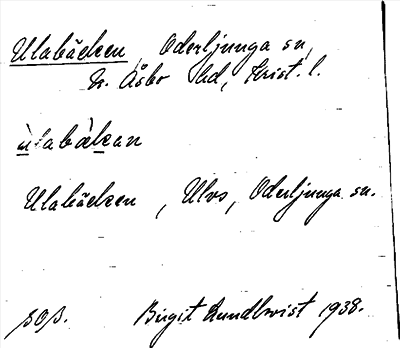 Ulabäcken, Oderljunga sn,
N. Åsbo hd, Krist. l.
ùlabàkan
Ulabäcken, Ulvs, Oderljunga sn.
Birgit Lundkvist 1938.